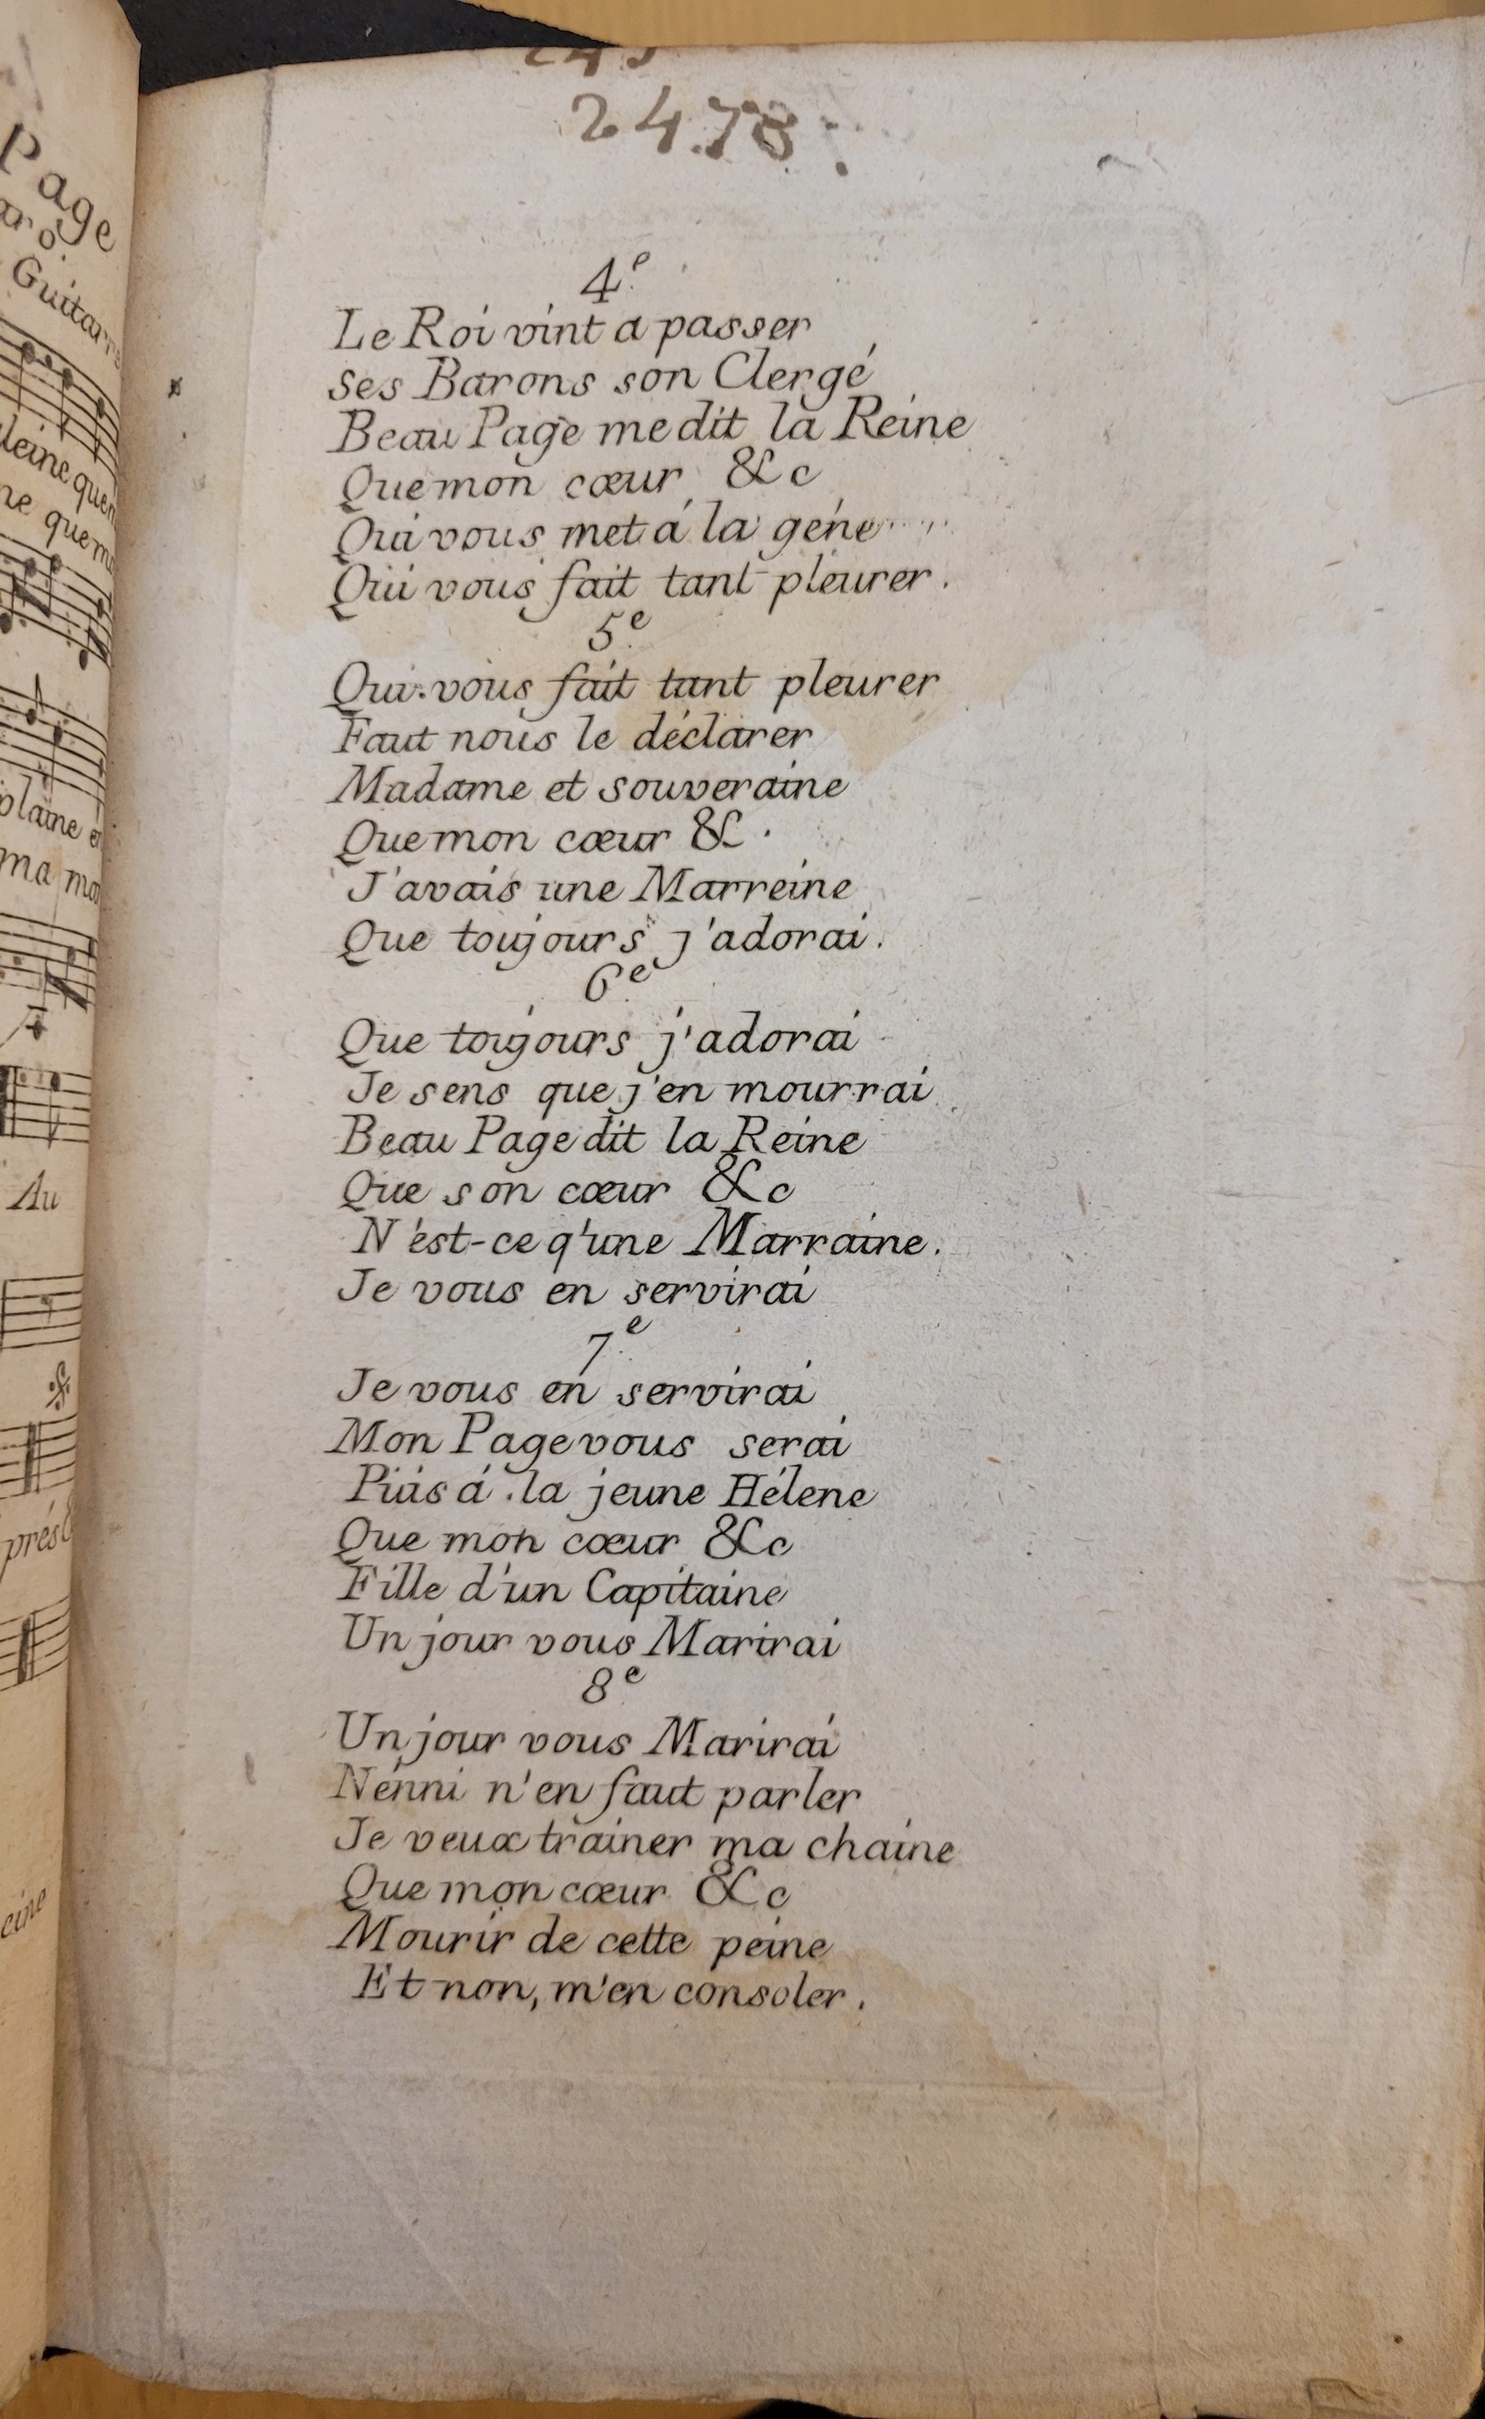 Page
Guitarre
2478
4.e
Le Roi vint a passer
ses Barons son Clergé
Beau Page me dit la Reine
Que mon cœur &c
Qui vous met á la géne
Qui vous fait tant pleurer.
5.e
Qui vous fait tant pleurer
Faut nous le déclarer
Madame et souveraine
Que mon cœur &.
J'avais une Marreine
Que toujours j'adorai.
6.e
Que toujours j'adorai
Je sens que j'en mourrai
Beau Page dit la Reine
Que son cœur &c
N'est-ce q'une Marraine.
Je vous en servirai
7.e
Je vous en servirai
Mon Page vous serai
Puis á la jeune Hélene
Que mon cœur &c
Fille d'un Capitaine
Un jour vous Marirai
8e
Un jour vous Marirai
Nénni n'en faut parler
Je veux trainer ma chaine
Que mon cœur &c
Mourir de cette peine
Et non, m'en consoler.
plaine
ma
Au
prés